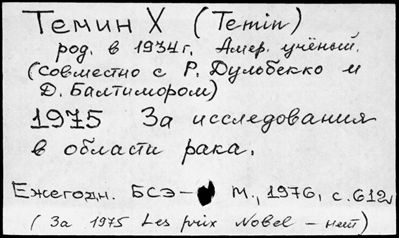 Темин Х (Temin)
род. в 1934 г. Амер. учёный.
(совместно с Р. Дульбекко и
Д. Балтимором)
1975 За исследования
в области рака.
Ежегодн. БСЭ - М., 1976, с. 612
(За 1975 Les prix Nobel - нет)